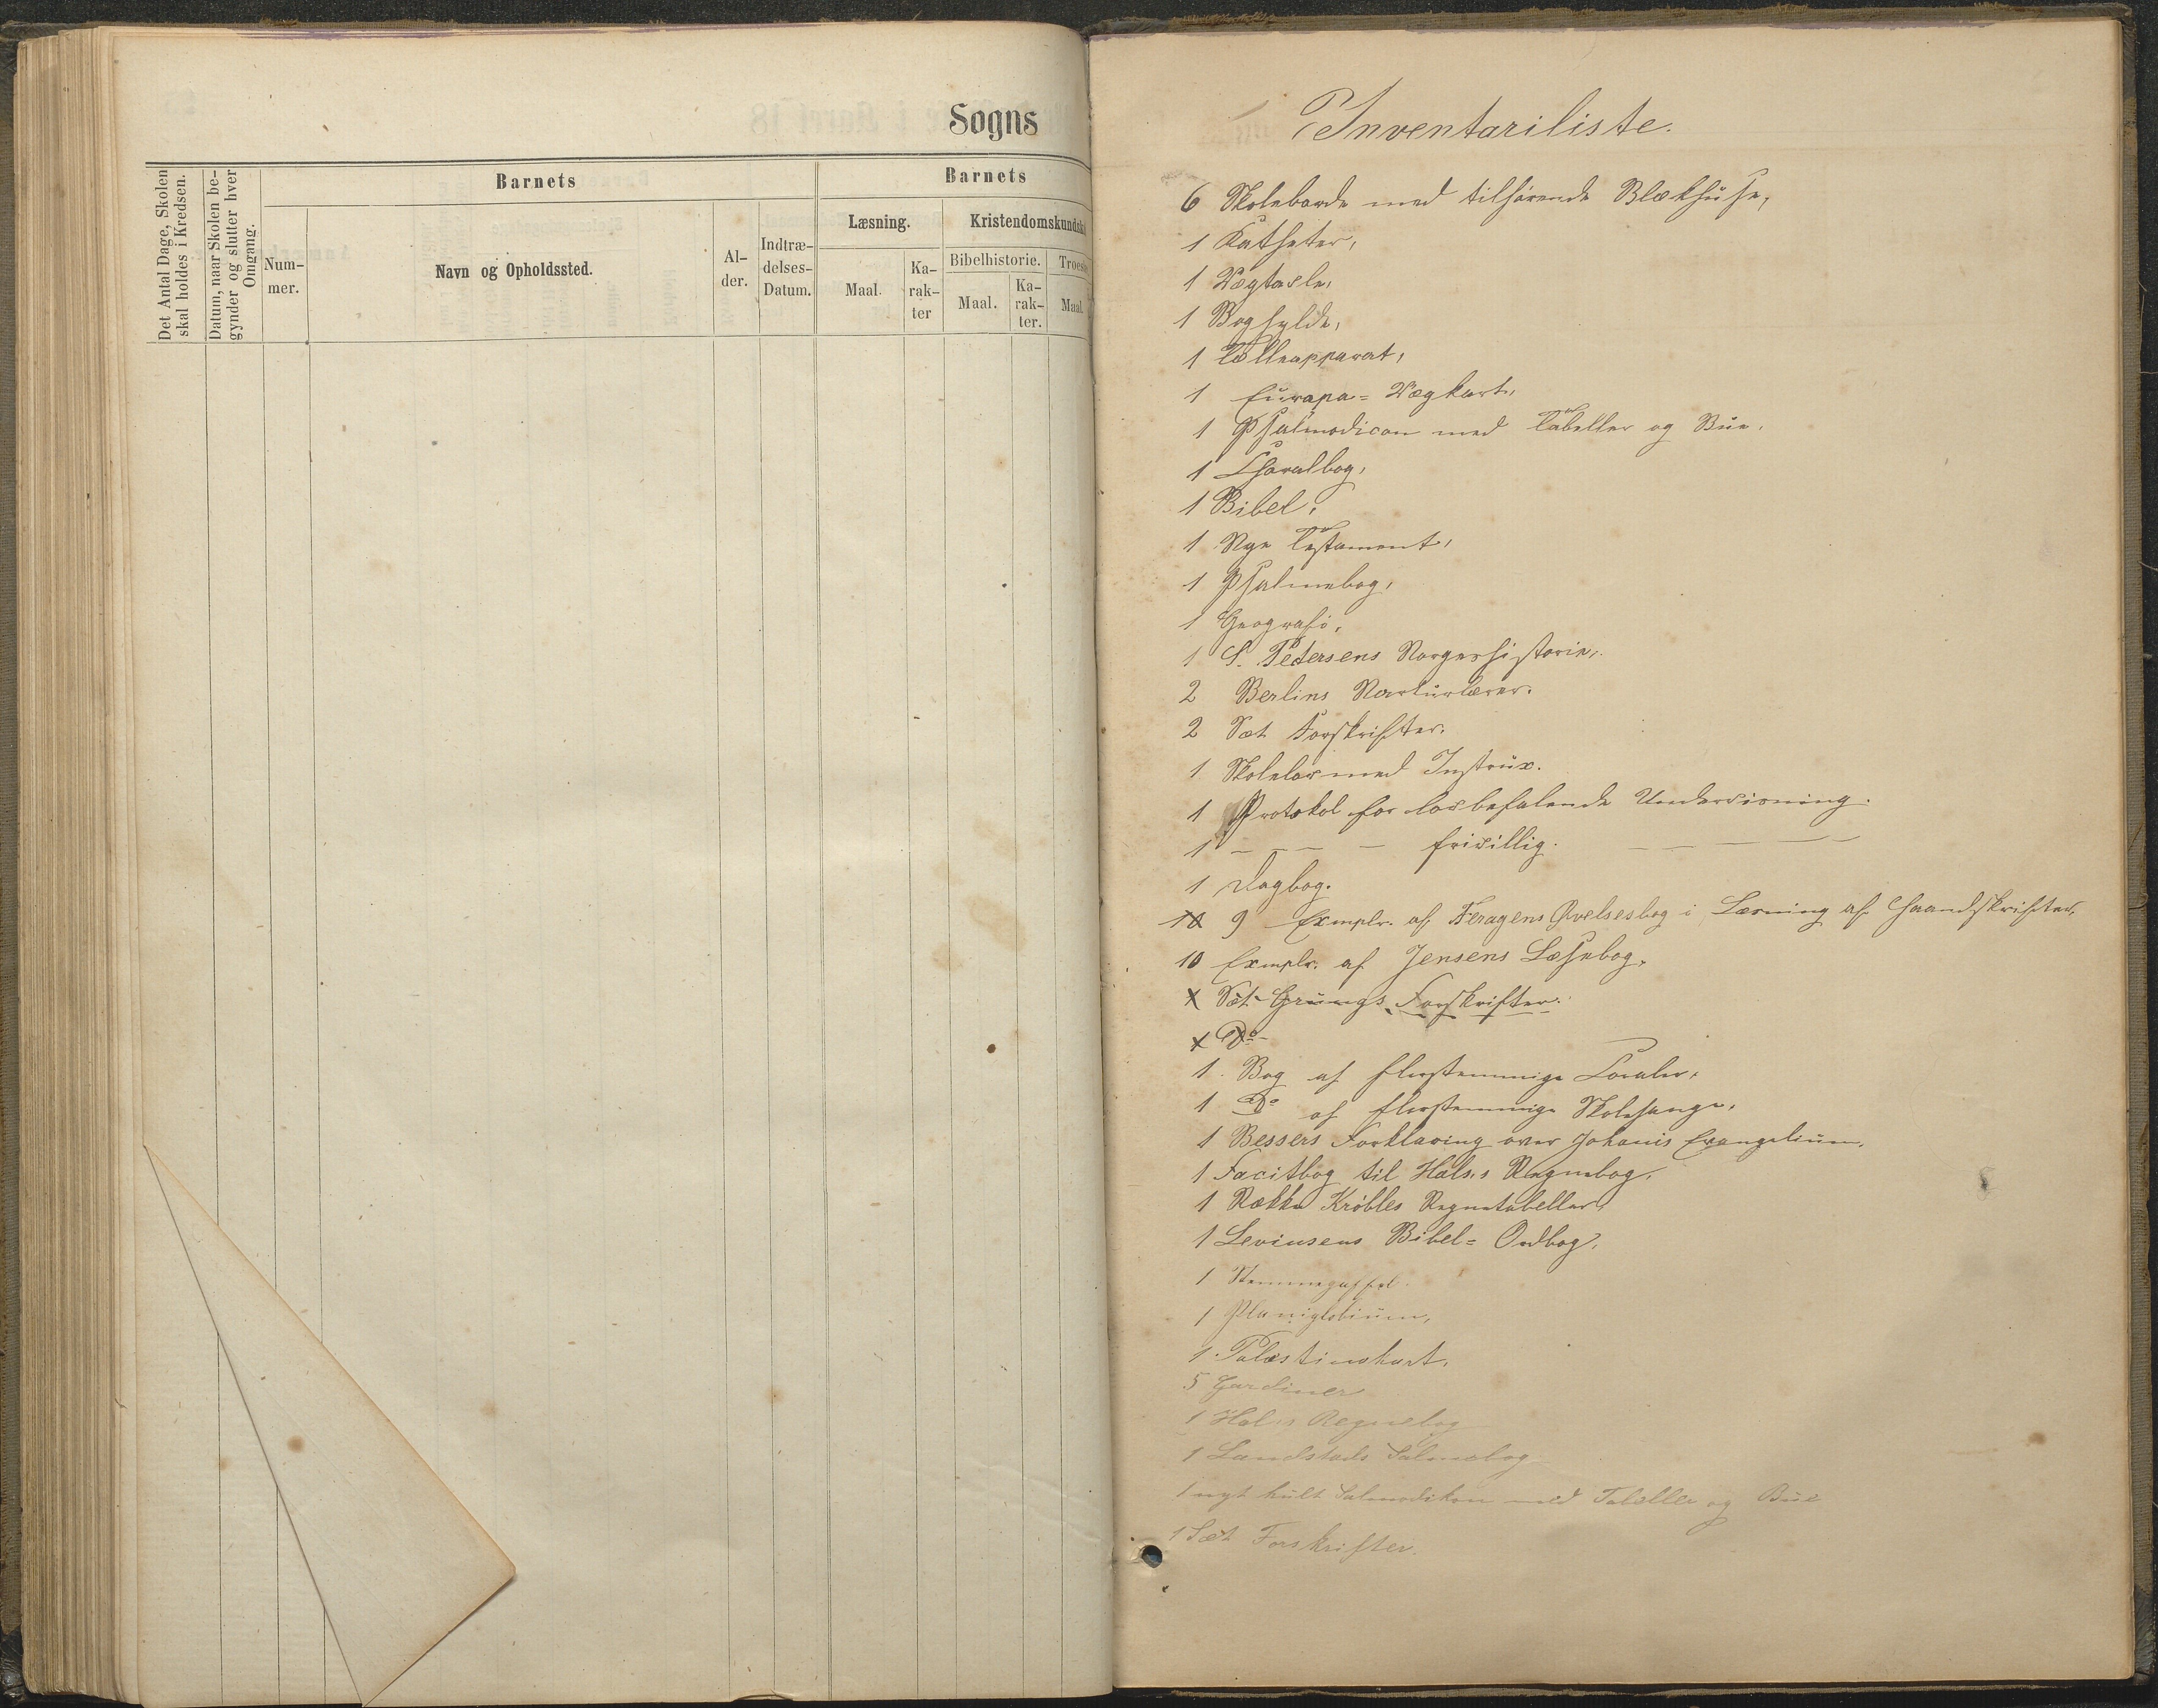 Sogns
Det Antal Dage, Skolen
skal holdes i Kredsen.
Datum, naar Skolen be-
gynder og slutter hver
Omgang.
Barnets
Num-
mer.
Navn og Opholdssted.
Al-
der.
Indtræ-
delses-
Datum.
Barnets
Læsning.
Maal.
Ka-
rak-
ter
Kristendomskundsk
Bibelhistorie.
Maal.
Ka-
rak-
ter.
Troes
Maal.
Inventariliste.
6 Skoleborde med tilhørende Blækhuse,
1 Katheter,
1 Vægtavle,
1 Boghylde,
1 Tælleapparat,
1 Europa=Vægkart,
1 Psalmodicon med Tabeller og Bue,
1 Choralbog,
1 Bibel,
1 Nye Testament,
1 Psalmebog,
1 Geografi,
1 S. Petersens Norgeshistorie,
2 Berlins Naturlærer.
2 Sæt Forskrifter.
1 Skolelov med Instrux.
1 Protokol for lovbefalende Undervisning.
1 – – – – frivillig. – – – – –
1 Dagbog.
10 9 Exmplr. af Feragens Øvelsesbog i Læsning af Haandskrifter,
10 Exmplr. af Jensens Læsebog,
1 Sæt Grungs Forskrifter.
1 Do
1 Bog af flerstemmige Coraler,
1 Do af flerstemmige Skolesange,
1 Bessers Forklaring over Johanis Evangelium,
1 Facitbog til Halses Regnebog,
1 Række Kröbles Regnetabeller,
1 Levinsens Bibel= Ordbog,
1 Stemmegaffel
1 Planiglobium,
1 Palæstinakart,
5 Gardiner
1 Hals's Regnebog
1 Landstads Salmebog
1 nyt Salmodikon med Tabeller og Bue
1 Sæt Forskrifter.